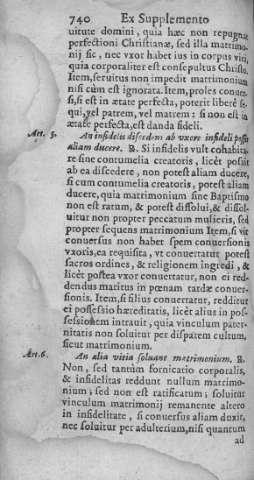 740 Ex Supplemento
uitute domini, quia hæc non repugnat
perfectioni Christianæ, sed illa matrimo-
nij sic, nec vxor habet ius in corpus viri,
quia corporaliter est consepultus Christo.
Item, seruitus non impedit matrimonium
nisi cùm est ignorata. Item, proles conuer-
sa, si est in ætate perfecta, poterit liberè se-
qui, vel patrem, vel matrem: si non est in
ætate perfecta, est danda fideli.
Art. 5. An infidelis discedens ab vxore infideli possit
aliam ducere. R. Si infidelis vult cohabita-
re sine contumelia creatoris, licèt possit
ab ea discedere, non potest aliam ducere,
si cum contumelia creatoris, potest aliam
ducere, quia matrimonium sine Baptismo
non est ratum, & potest dissolui, & dissol-
uitur non propter peccatum mulieris, sed
propter sequens matrimonium Item, si vir
conuersus non habet spem conuersionis
vxoris, ea requisita, vt conuertatur potest
sacros ordines, & religionem ingredi, &
licèt postea vxor conuertatur, non ei red-
dendus maritus in pœnam tardæ conuer-
sionis. Item, si filius conuertatur, redditur
ei possessio hæreditatis, licèt alius in pos-
sessionem intrauit, quia vinculum pater-
nitatis non soluitur per disparem cultum,
sicut matrimonium.
Art. 6. An alia vitia soluant matrimonium. R.
Non, sed tantùm fornicatio corporalis,
& infidelitas reddunt nullum matrimo-
nium, sed non est ratificatum; soluitur
vinculum matrimonij remanente altero
in infidelitate, si conuersus aliam duxit,
nec soluitur per adulterium, nisi quantum
ad